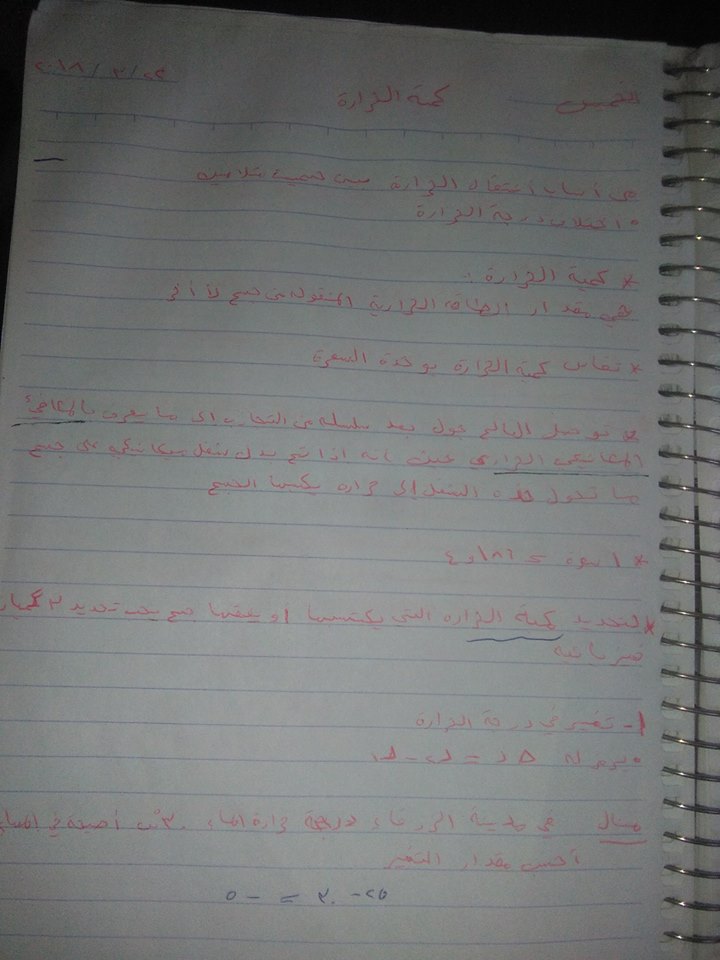 الخميس كمية الحرارة ٢٠١٨/٣/٢٢
من أسباب انتقال الحرارة بين جسمين متلامسين
• اختلاف درجة الحرارة
* كمية الحرارة :
هي مقدار الطاقة الحرارية المنقوله من جسم لأخر
* تقاس كمية الحرارة بوحدة السعرة
توصل العالم جول بعد سلسله من التجارب الى ما يعرف بالمكافئ
الميكانيكي الحراري حيث انه اذا تم بذل شغل ميكانيكي على جسم
ما تحول هذه الشغل إلى حراره يكسبها الجسم
* ١ سعره = ٤,١٨٦
* لتحديد كمية الحراره التي يكتسبها او يفقدها جسم يجب تحديد ٣ كميات
فيزيائيه
١- تغير في درجة الحرارة
• يرمز له Δد = د٢ - د١
مثال في مدينة الزرقاء درجة حرارة الماء ٣٠ْس أصبحت في المساء
أحسب مقدار التغير
٢٥ - ٣٠ = -٥